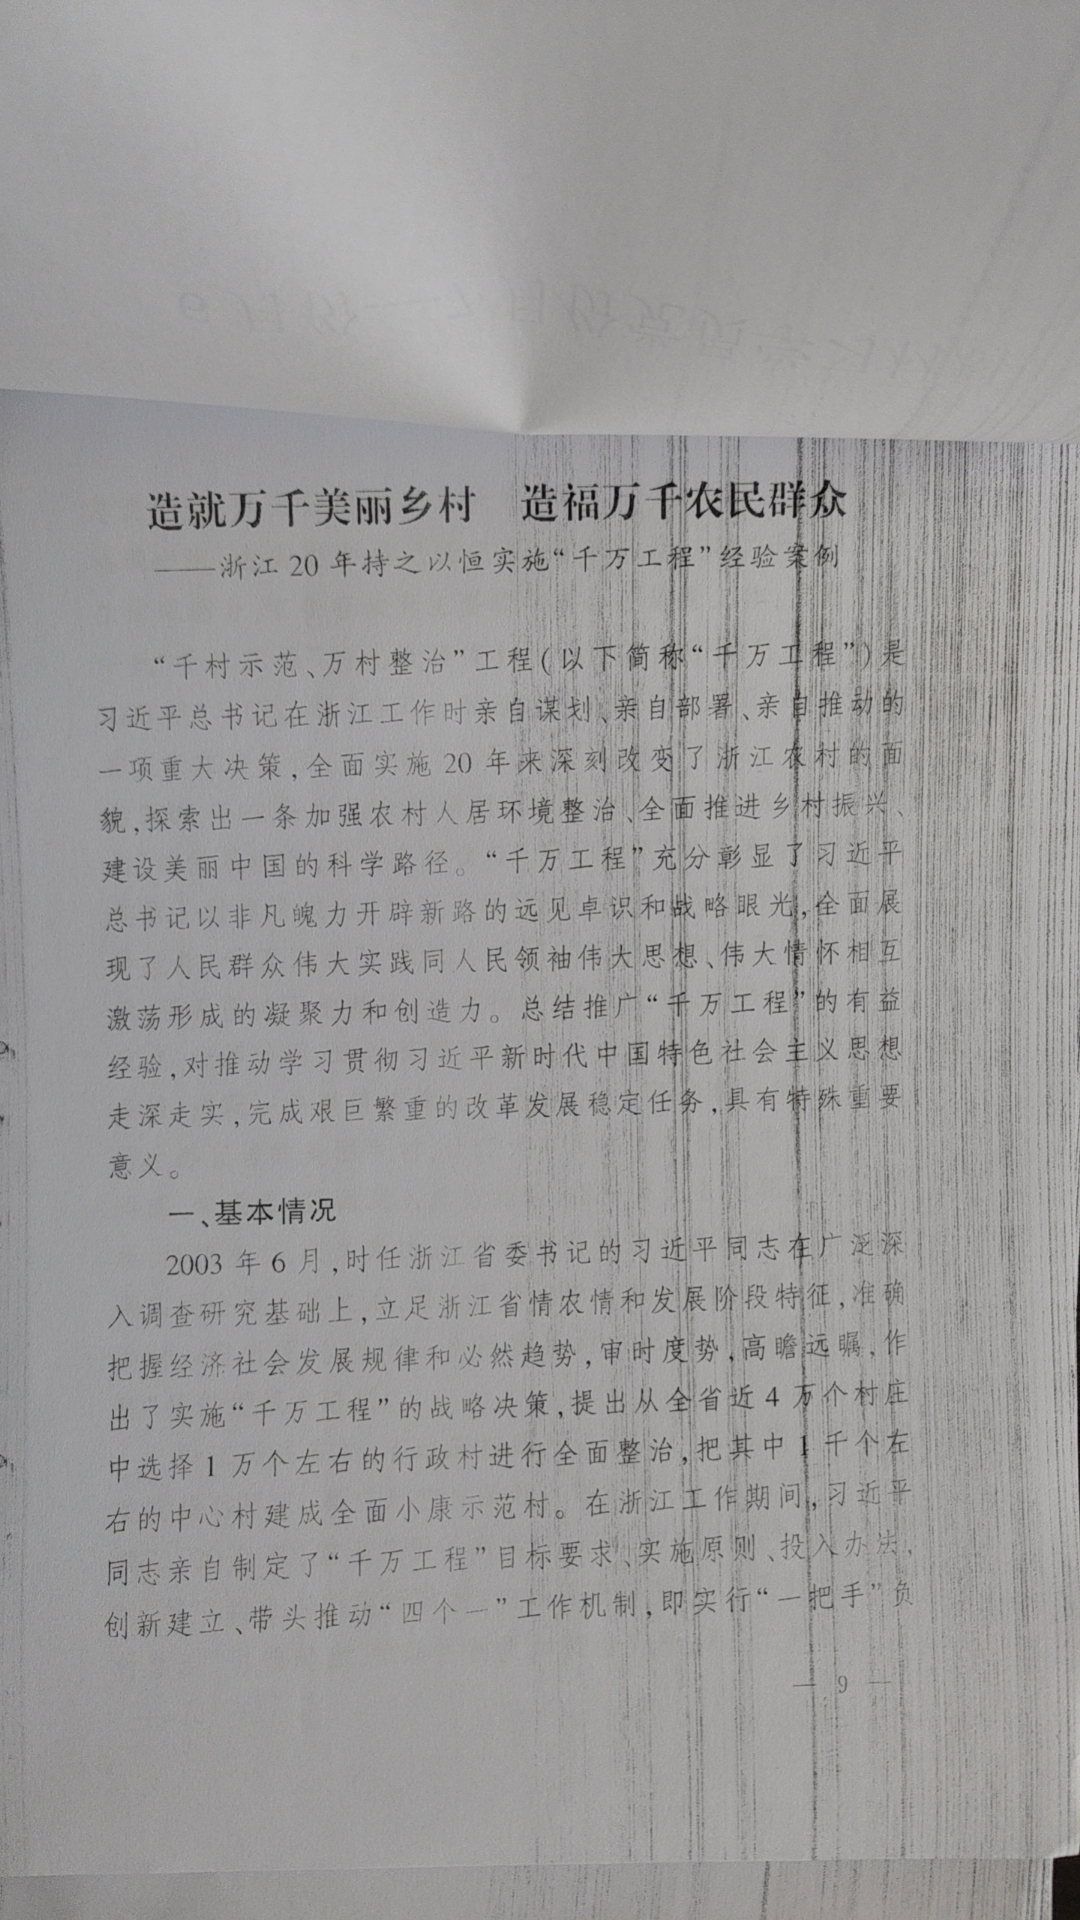 造就万千美丽乡村　造福万千农民群众
——浙江20年持之以恒实施“千万工程”经验案例
“千村示范、万村整治”工程(以下简称“千万工程”)是
习近平总书记在浙江工作时亲自谋划、亲自部署、亲自推动的
一项重大决策,全面实施20年来深刻改变了浙江农村的面
貌,探索出一条加强农村人居环境整治、全面推进乡村振兴、
建设美丽中国的科学路径。“千万工程”充分彰显了习近平
总书记以非凡魄力开辟新路的远见卓识和战略眼光,全面展
现了人民群众伟大实践同人民领袖伟大思想、伟大情怀相互
激荡形成的凝聚力和创造力。总结推广“千万工程”的有益
经验,对推动学习贯彻习近平新时代中国特色社会主义思想
走深走实,完成艰巨繁重的改革发展稳定任务,具有特殊重要
意义。
一、基本情况
2003年6月,时任浙江省委书记的习近平同志在广泛深
入调查研究基础上,立足浙江省情农情和发展阶段特征,准确
把握经济社会发展规律和必然趋势,审时度势,高瞻远瞩,作
出了实施“千万工程”的战略决策,提出从全省近4万个村庄
中选择1万个左右的行政村进行全面整治,把其中1千个左
右的中心村建成全面小康示范村。在浙江工作期间,习近平
同志亲自制定了“千万工程”目标要求、实施原则、投入办法,
创新建立、带头推动“四个一”工作机制,即实行“一把手”负
— 9 —